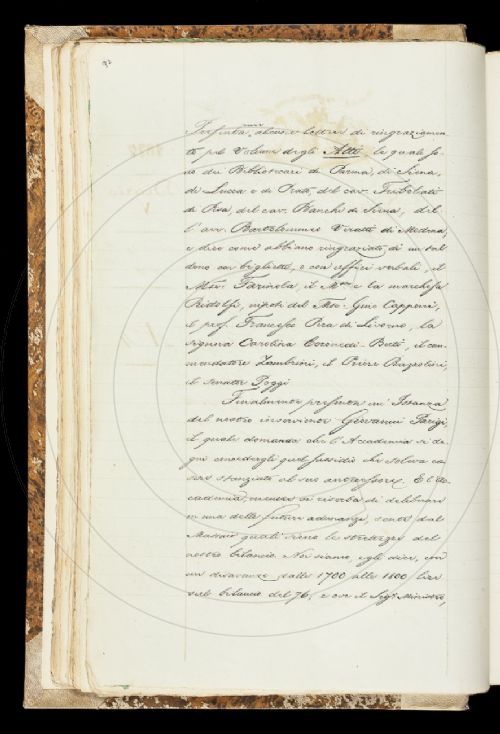 92
Presenta alcune lettere di ringraziamen
to pel Volume degli Atti le quali so
no dei Bibliotecari di Parma, di Siena,
di Lucca e di Prato, del cav.
di Pisa, del cav. Bianchi di Siena, del
l'avv. Bartolommeo Veratti di Modena,
e dice come abbiano ringraziato di un tal
dono con biglietti, e con uffici verbali, il
Mse. Farinola, il M. e la marchesa
Ridolfi, nipoti del Mse. Gino Capponi,
il prof. Francesco Pera di Livorno, la
signora Carolina Coronedi-Berti, il com
mendatore Zambrini, il Priore Razzolini,
il senator Poggi
Finalmente presenta un'Istanza
del nostro inserviente Giovanni Parigi,
il quale domanda che l'Accademia si de
gni concedergli quel sussidio che soleva es
sere stanziato al suo antecessore. E l'Ac
cademia, mentre si riserba di deliberare
in una delle future adunanze, sente dal
Massaio quali siano le strettezze del
nostro bilancio. Noi siamo, egli dice, con
un disavanzo dalle 1700 alle 1800 lire
sul bilancio del 76, e ove il Sig. Ministro,